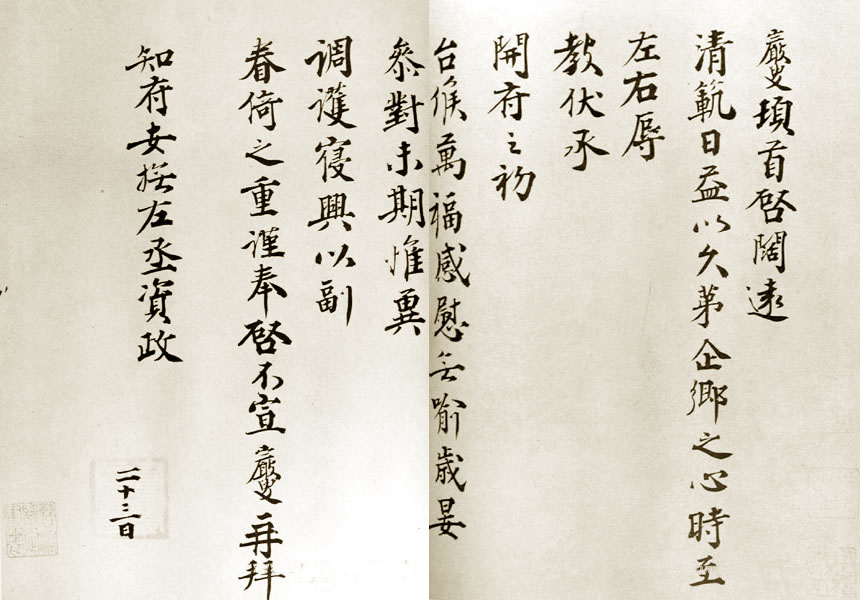 巖叟頓首啓闊遠
清範日益以久苐企鄉之心時至
左右辱
教伏承
開府之初
台候萬福感慰無喻歲晏
叅對未期惟冀
調護寢興以副
眷倚之重謹奉啓不宣巖叟再拜
知府安撫左丞資政
二十三日